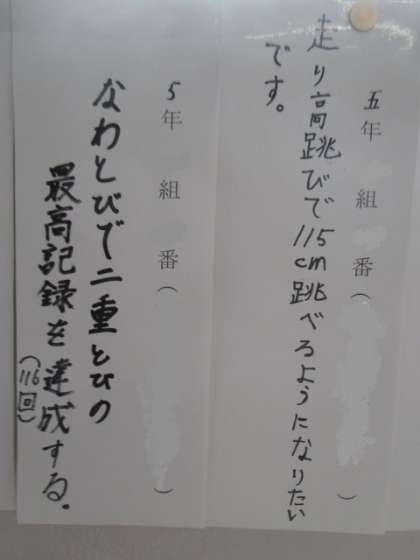 五年 組 番( )
走り高跳びで115cm跳べるようになりたい
です。
5年 組 番( )
なわとびで二重とびの
最高記録を達成する.
(116回)